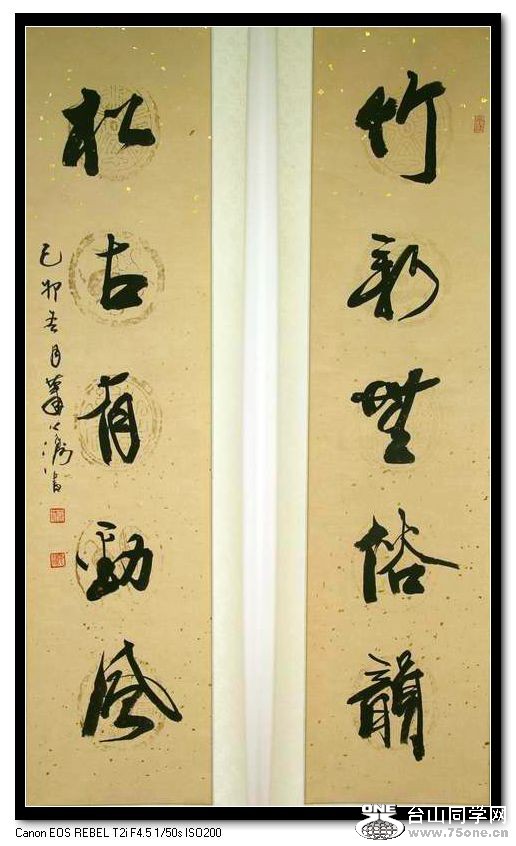 竹新無俗韻
松古有勁風
己卯春月
書
台山同学网
www.75one.cn
ONE
Canon EOS REBEL T2i F4.5 1/50s ISO200